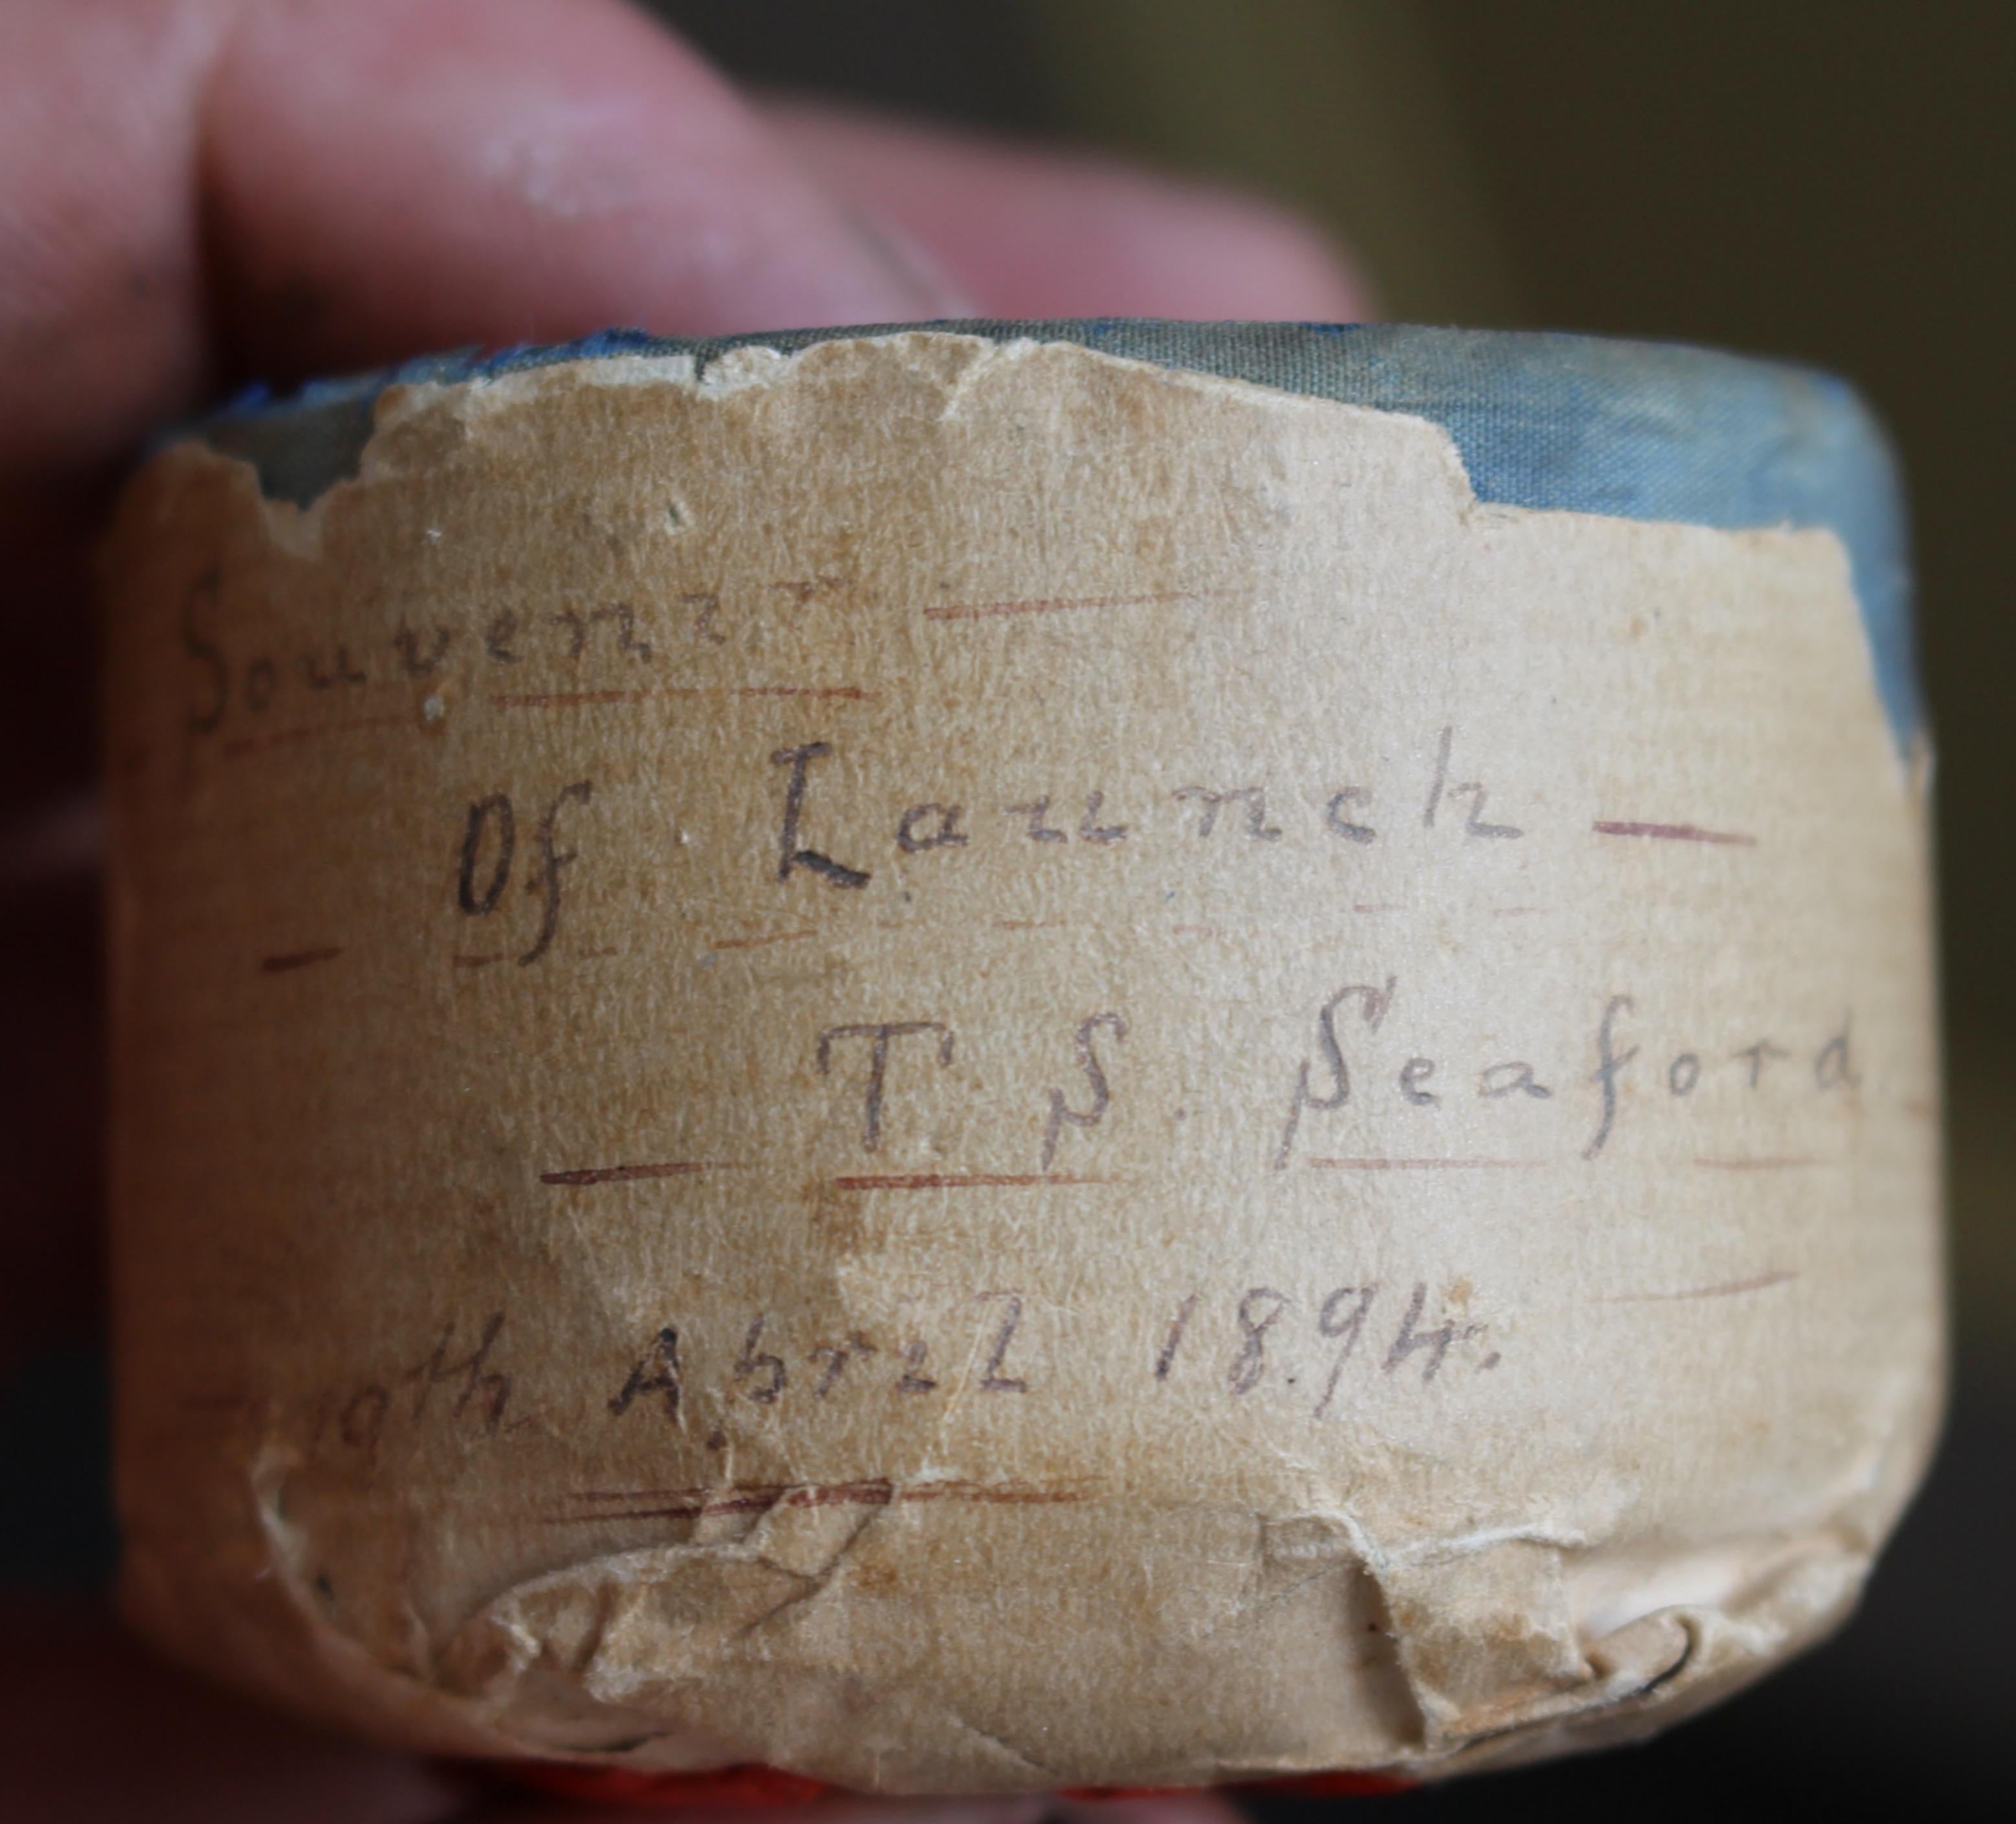 Souvenir —
Of Launch —
T. S. Seaford
19th April 1894.